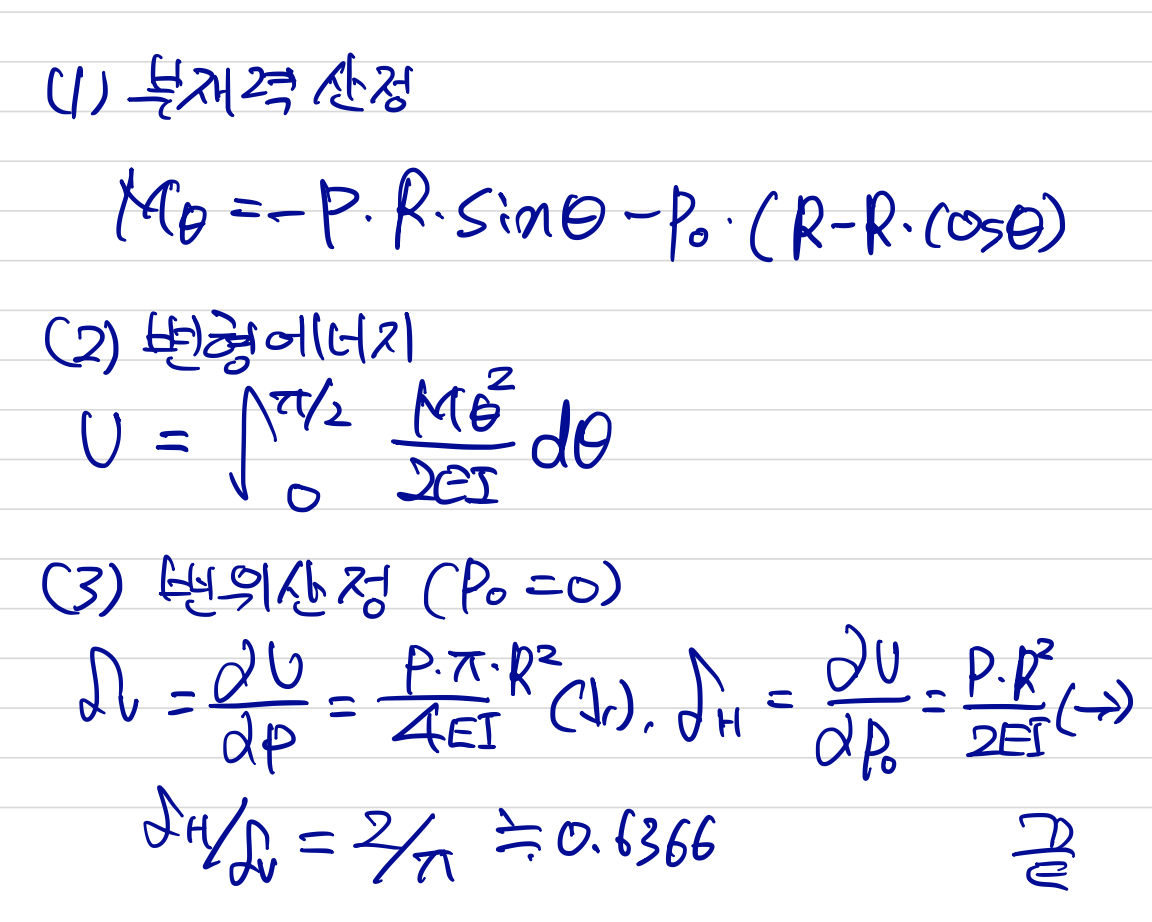 (1) 부재력 산정
Mθ = -P·R·sinθ - P₀·(R-R·cosθ)
(2) 변형에너지
U = ∫₀^π/2 Mθ²/2EI dθ
(3) 변위산정 (P₀=0)
δv = ∂U/∂P = P·π·R²/4EI (↓), δH = ∂U/∂P₀ = P·R²/2EI (→)
δH/δv = 2/π ≒ 0.6366